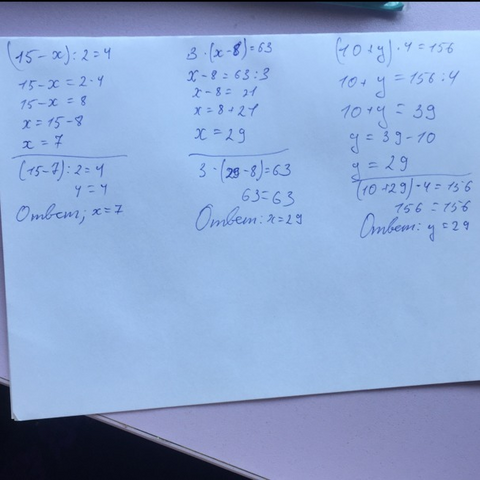 (15-x):2=4
15-x=2·4
15-x=8
x=15-8
x=7
(15-7):2=4
4=4
Ответ; x=7
3·(x-8)=63
x-8=63:3
x-8=21
x=8+21
x=29
3·(29-8)=63
63=63
Ответ: x=29
(10+y)·4=156
10+y=156:4
10+y=39
y=39-10
y=29
(10+29)·4=156
156=156
Ответ: y=29